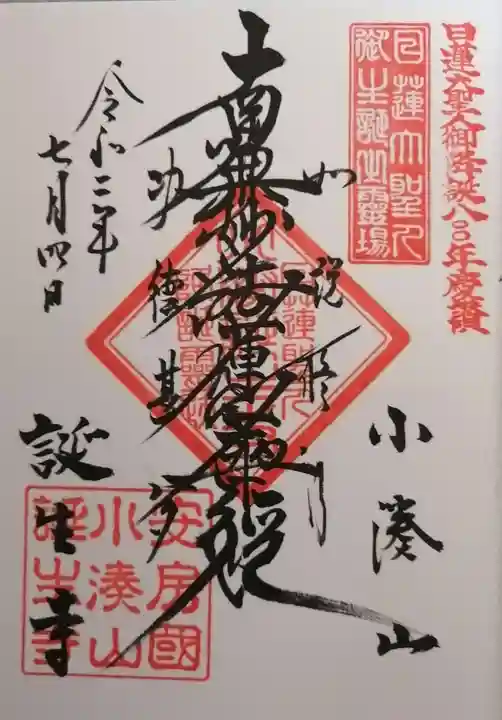 日蓮大聖人御降誕八〇〇年慶讃
日蓮大聖人
御生誕之靈場
小湊山
如説修行
南無妙法蓮華経
功徳甚多
令和二年
七月四日
誕生寺
安房國
小湊山
誕生寺